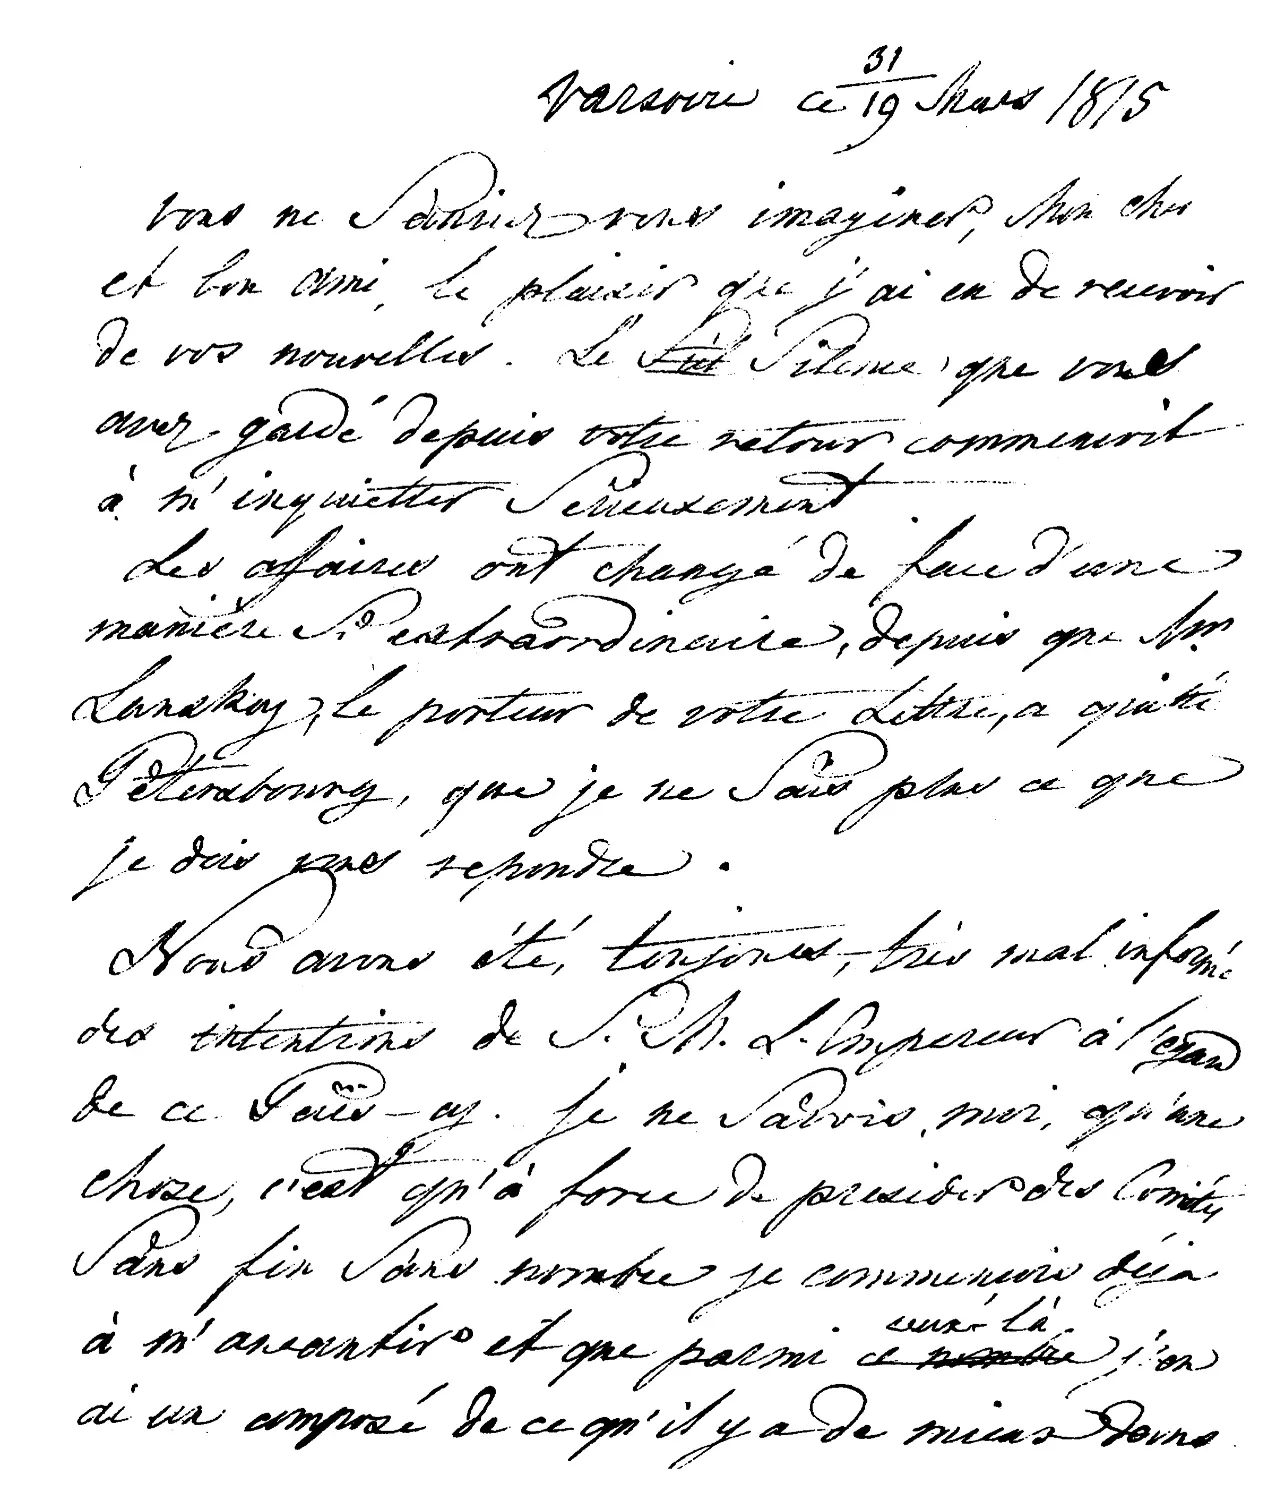 Varsovie ce 31/19 Mars 1815
vous ne Sauriez vous imaginer, Mon cher
et bon ami, le plaisir que j'ai eu de recevoir
de vos nouvelles. Le Silence que vous
avez gardé depuis votre retour commencoit
à m'inquietter Serieusement
Les affaires ont changé de face d'une
manière Si extraordinaire, depuis que Mr
Lanskoy, le porteur de votre Lettre, a quitté
Pétersbourg, que je ne Sais plus ce que
je dois vous repondre.
Nous avons été, toujours, très mal informé
des intentions de S. M. L. Empereur à l'egard
de ce Païs-cy. je ne Savois, moi, qu'une
chose, c'est qu'à force de presider des Comités
Sans fin Sans nombre je commencois déja
à m'aneantir et que parmi ceux-là j'en
ai un composé de ce qu'il y a de mieux dans